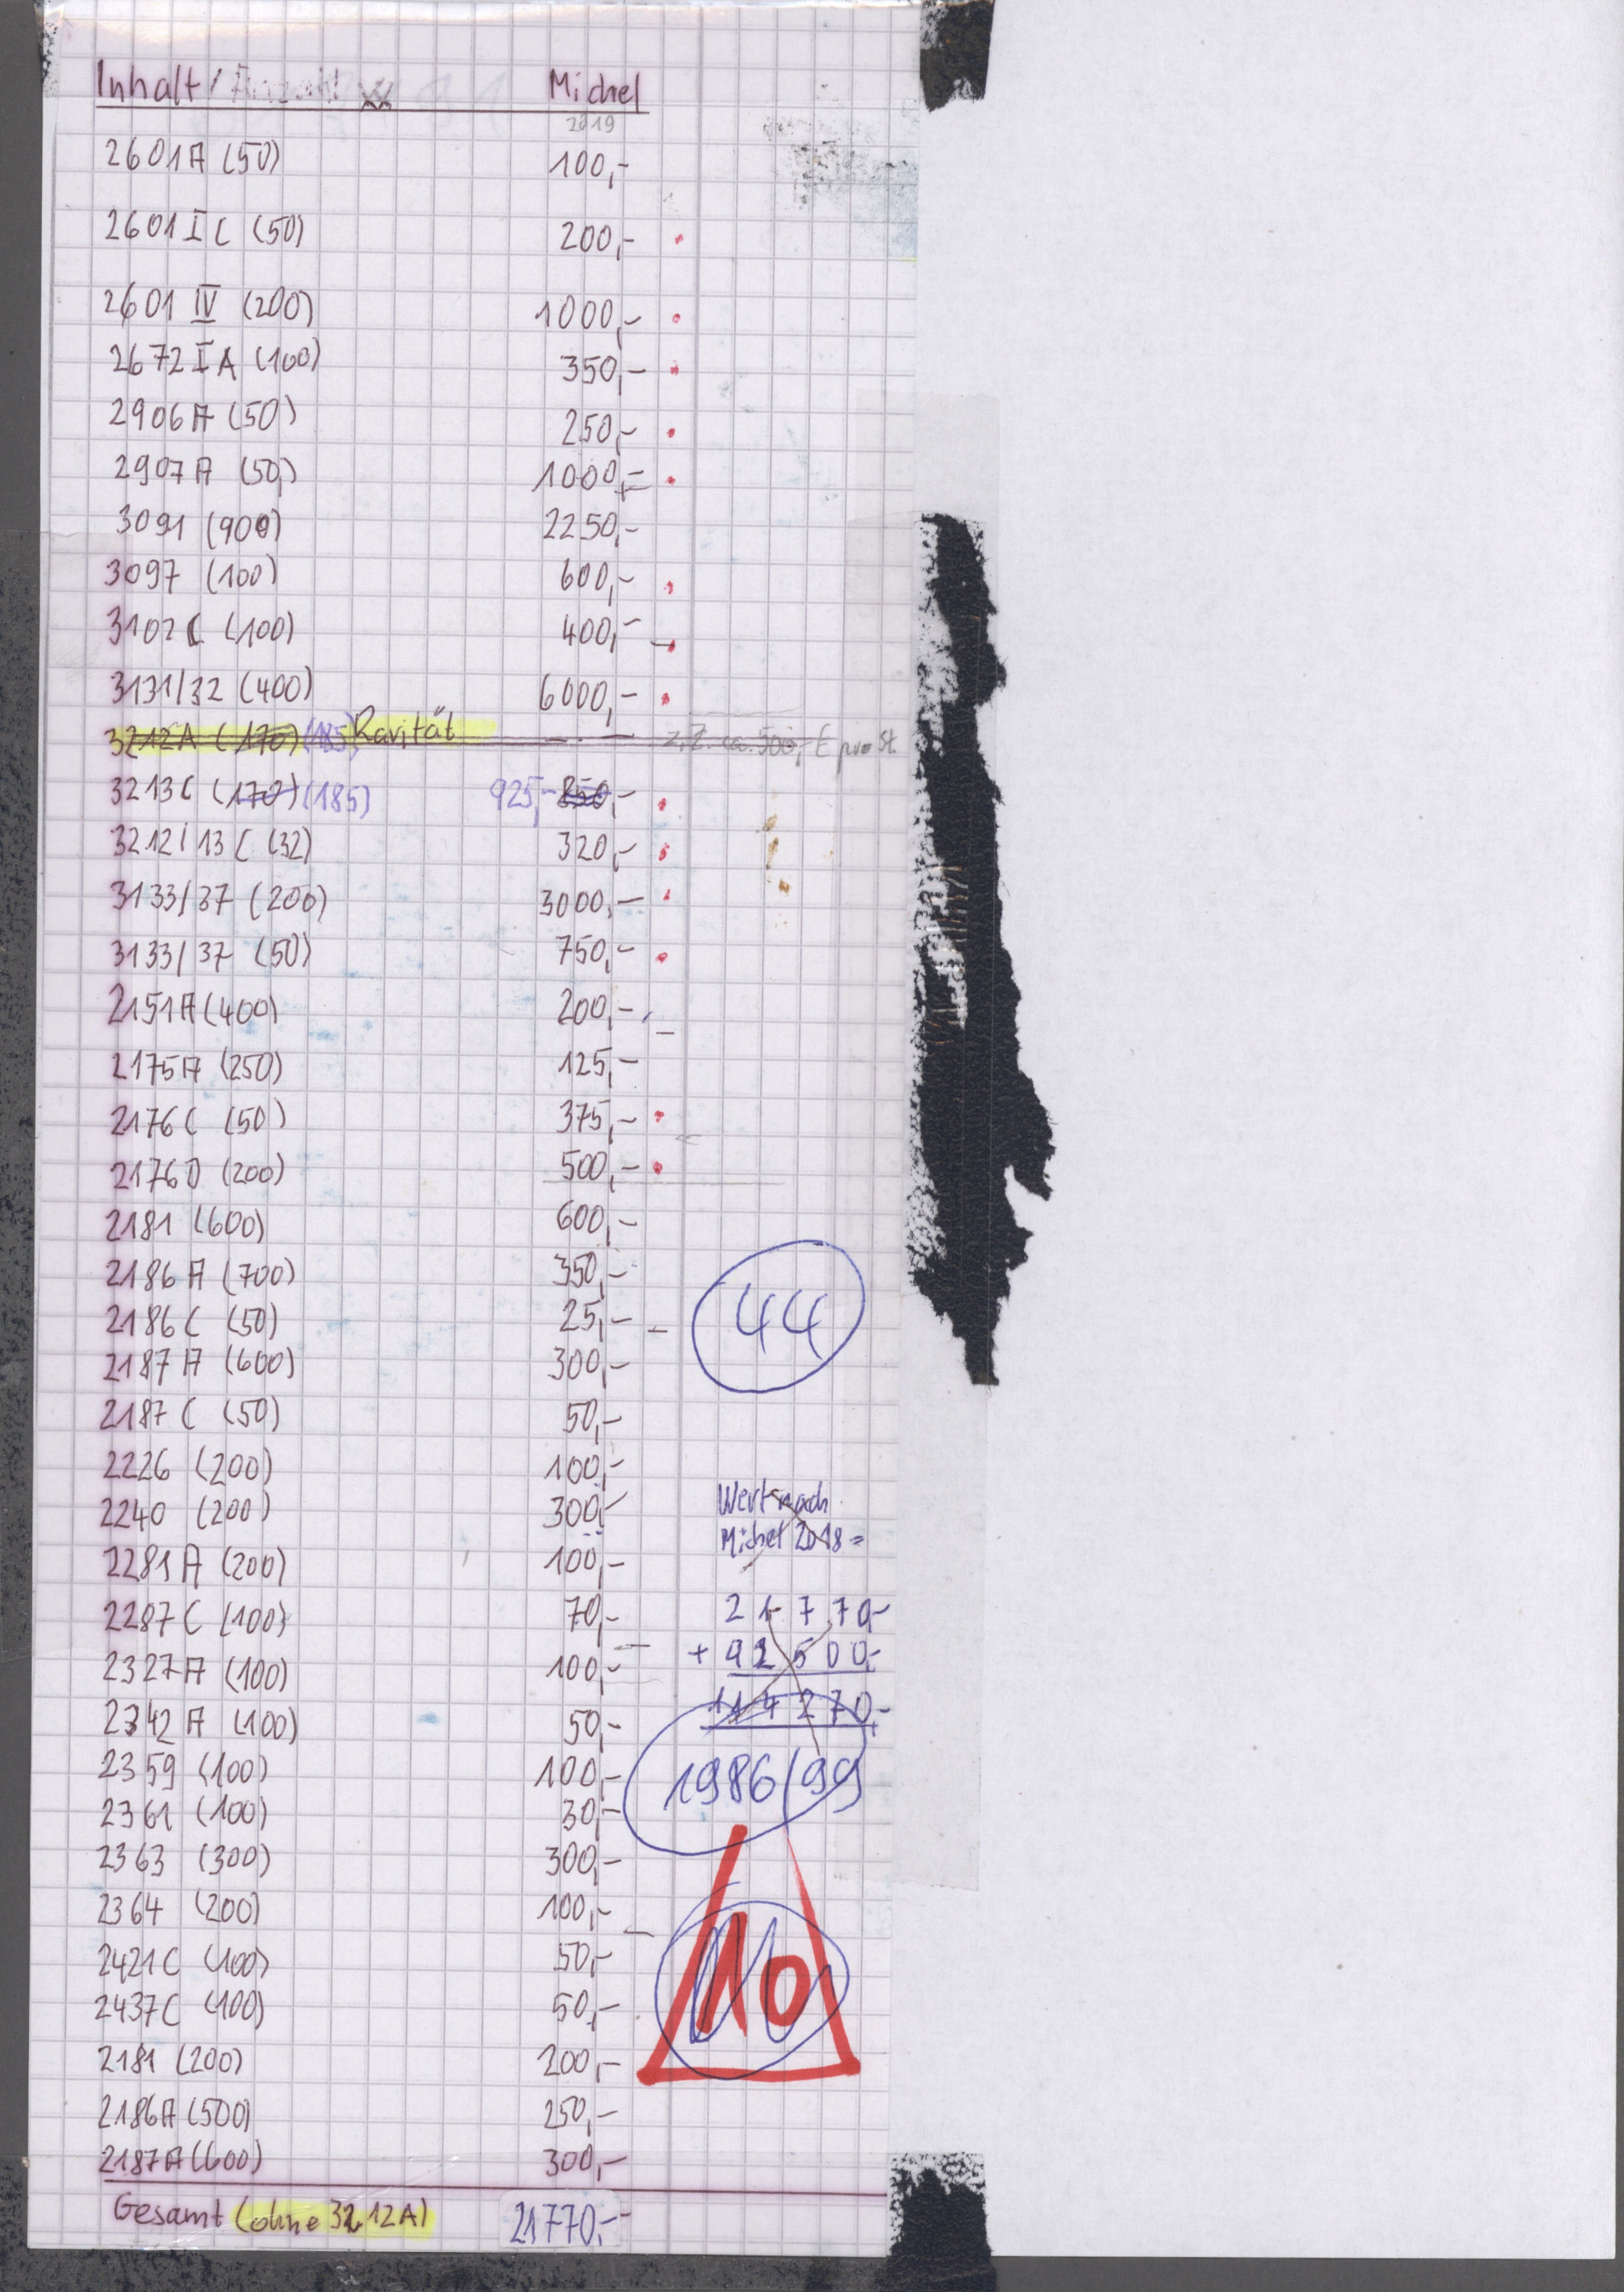 Inhalt / Anzahl Michel
2019
2601A (50) 100,-
2601 I C (50) 200,-
2601 IV (200) 1000,-
2672 I A (100) 350,-
2906A (50) 250,-
2907A (50) 1000,-
3091 (900) 2250,-
3097 (100) 600,-
3102 C (100) 400,-
3131/32 (400) 6000,-
3212A (170) (185) Rarität —.— z.Z. ca. 500,- € pro St.
3213C (170) (185) 925,- 850,-
3212/13 C (32) 320,-
3133/37 (200) 3000,-
3133/37 (50) 750,-
2151A (400) 200,-
2175A (250) 125,-
2176C (50) 375,-
2176D (200) 500,-
2181 (600) 600,-
2186A (700) 350,-
2186C (50) 25,-
44
2187A (600) 300,-
2187C (50) 50,-
2226 (200) 100,-
Wert nach
2240 (200) 300,-
Michel 2018 =
2281A (200) 100,-
2287C (100) 70,-
21770,-
+ 92500,-
2327A (100) 100,-
114270,-
2342A (100) 50,-
2359 (100) 100,-
1986/99
2361 (100) 30,-
2363 (300) 300,-
2364 (200) 100,-
2421C (100) 50,-
10
2437C (100) 50,-
2181 (200) 200,-
2186A (500) 250,-
2187A (600) 300,-
Gesamt (ohne 3212A) 21770,-